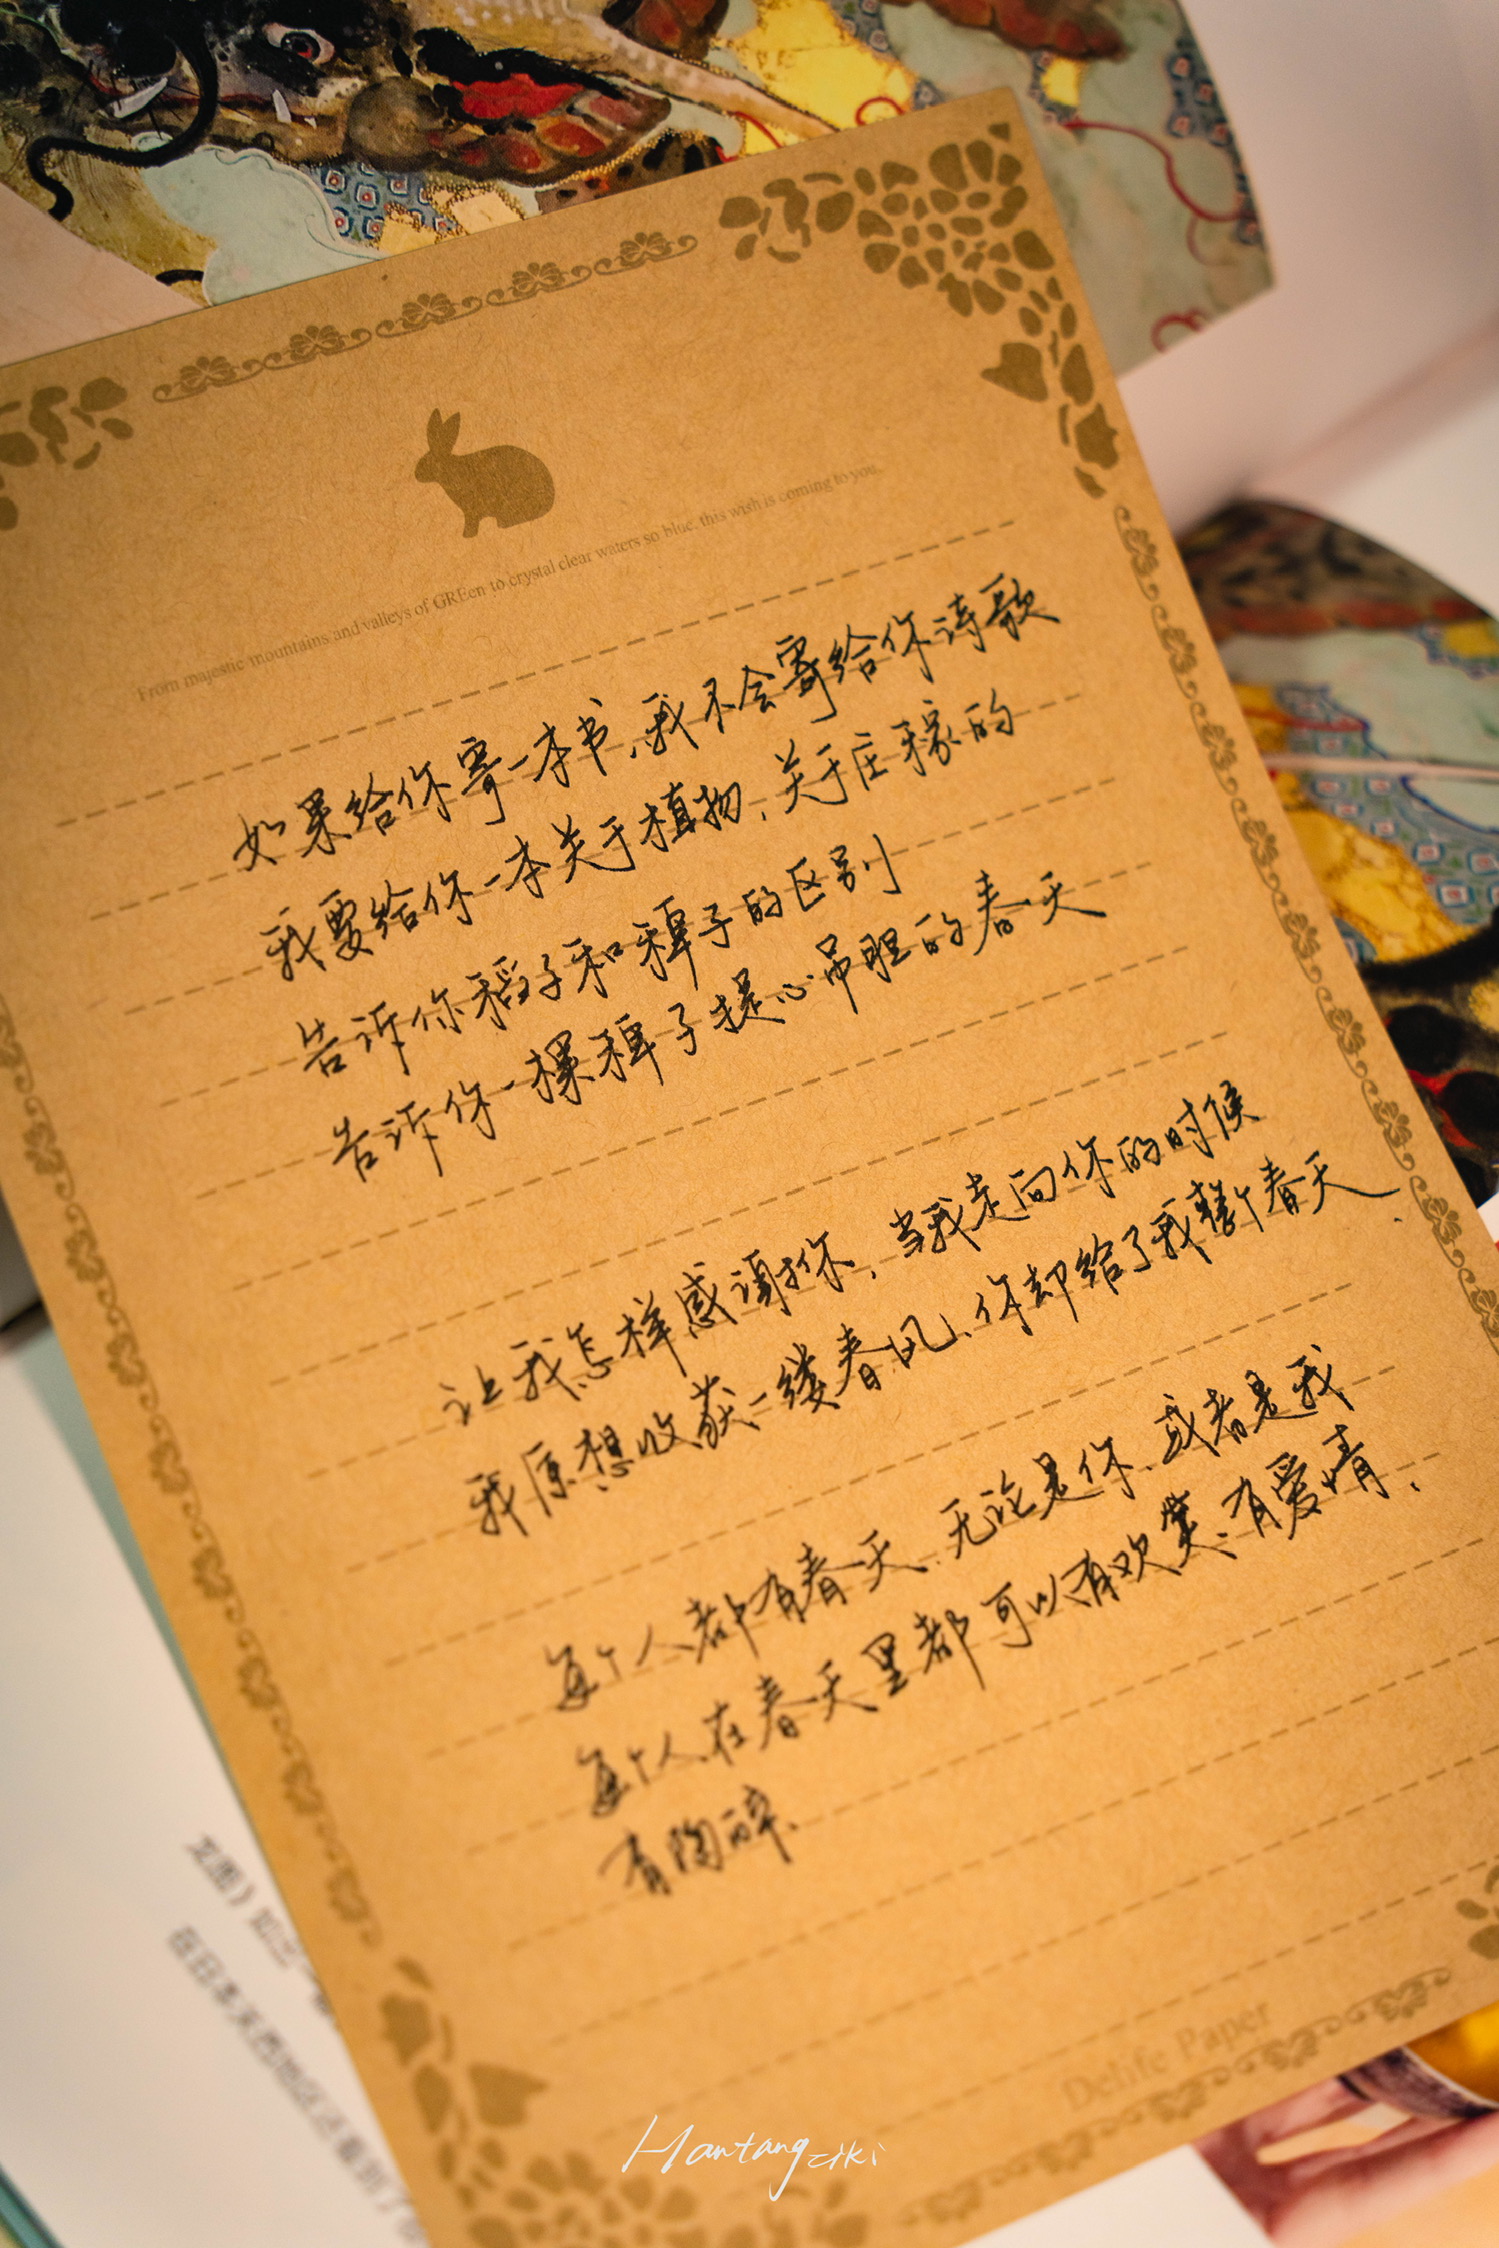 From majestic mountains and valleys of GREen to crystal clear waters so blue, this wish is coming to you.
如果给你寄一本书,我不会寄给你诗歌
我要给你一本关于植物,关于庄稼的
告诉你稻子和稗子的区别
告诉你一棵稗子提心吊胆的春天
让我怎样感谢你,当我走向你的时候
我原想收获一缕春风,你却给了我整个春天.
每个人都有春天,无论是你,或者是我
每个人在春天里都可以有欢笑,有爱情,
有陶醉.
Delife Paper
Hantangziki